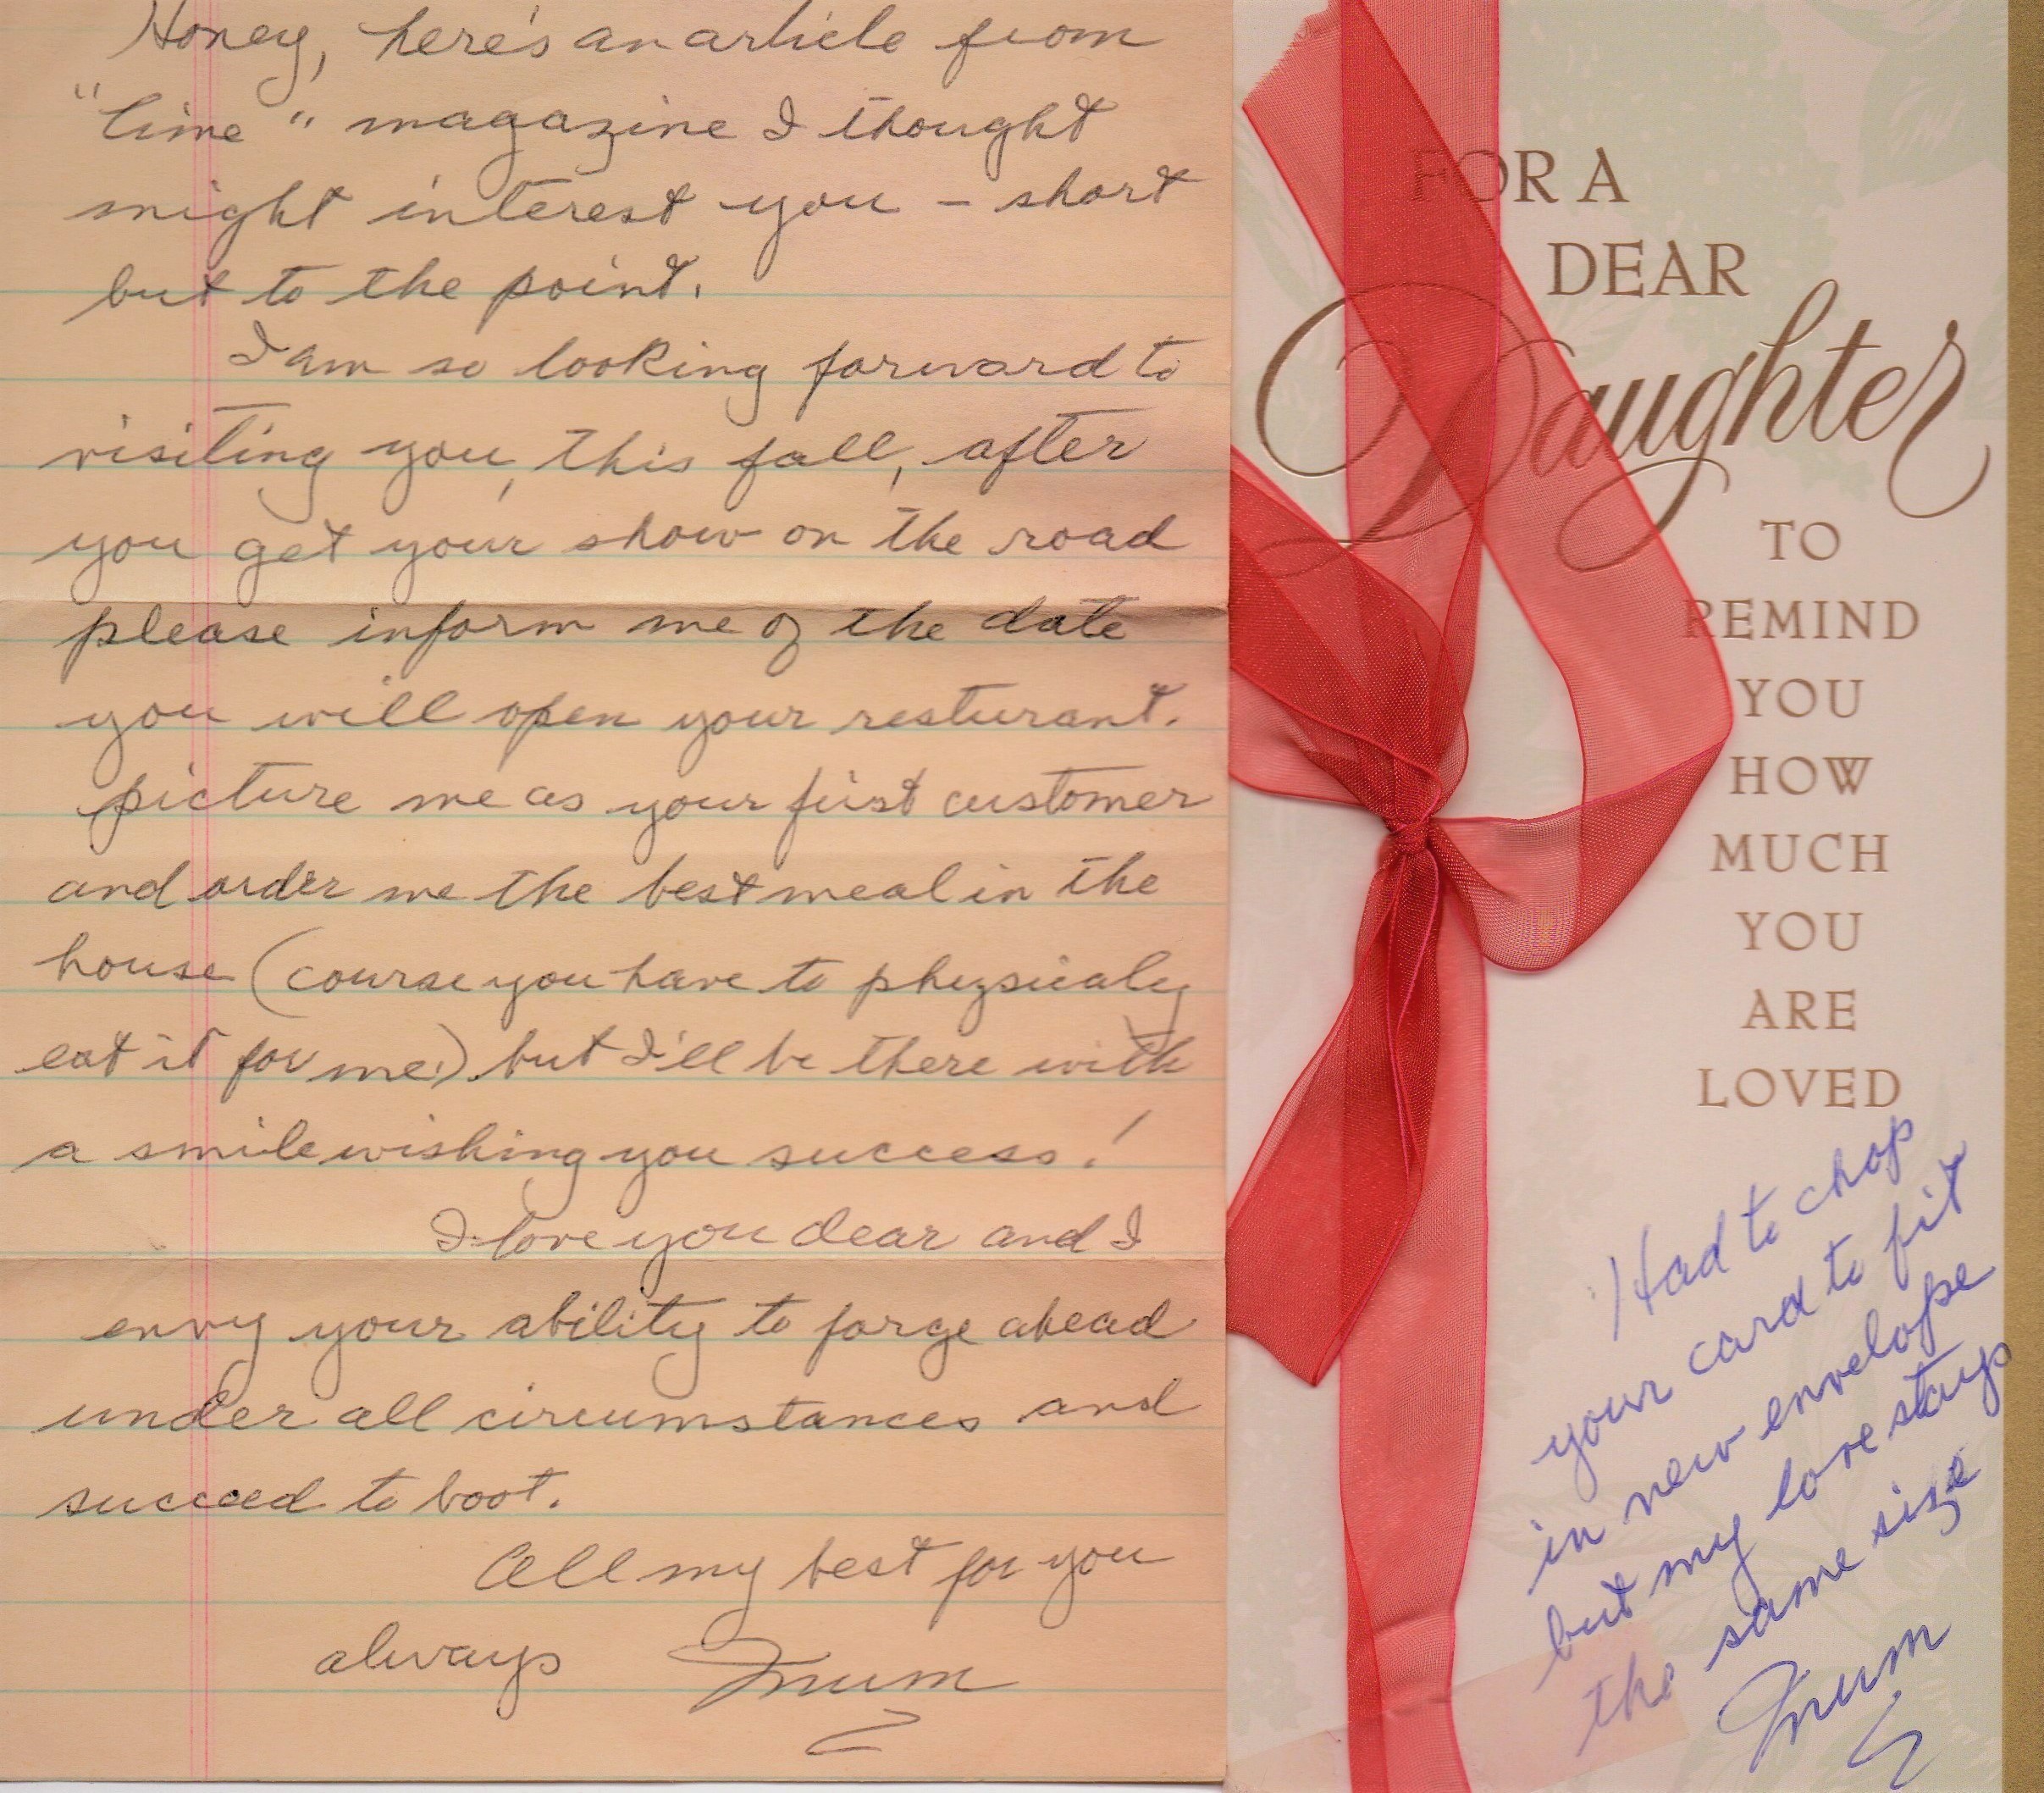 Honey, here's an article from
"Time" magazine I thought
might interest you - short
but to the point.
I am so looking forward to
visiting you, this fall, after
you get your show on the road
please inform me of the date
you will open your resturant.
picture me as your first customer
and order me the best meal in the
house (course you have to physicaly
eat it for me.) but I'll be there with
a smile wishing you success!
I love you dear and I
envy your ability to forge ahead
under all circumstances and
succeed to boot.
All my best for you
always Mum
FOR A
DEAR
Daughter
TO
REMIND
YOU
HOW
MUCH
YOU
ARE
LOVED
Had to chop
your card to fit
in new envelope
but my love stays
the same size
Mum